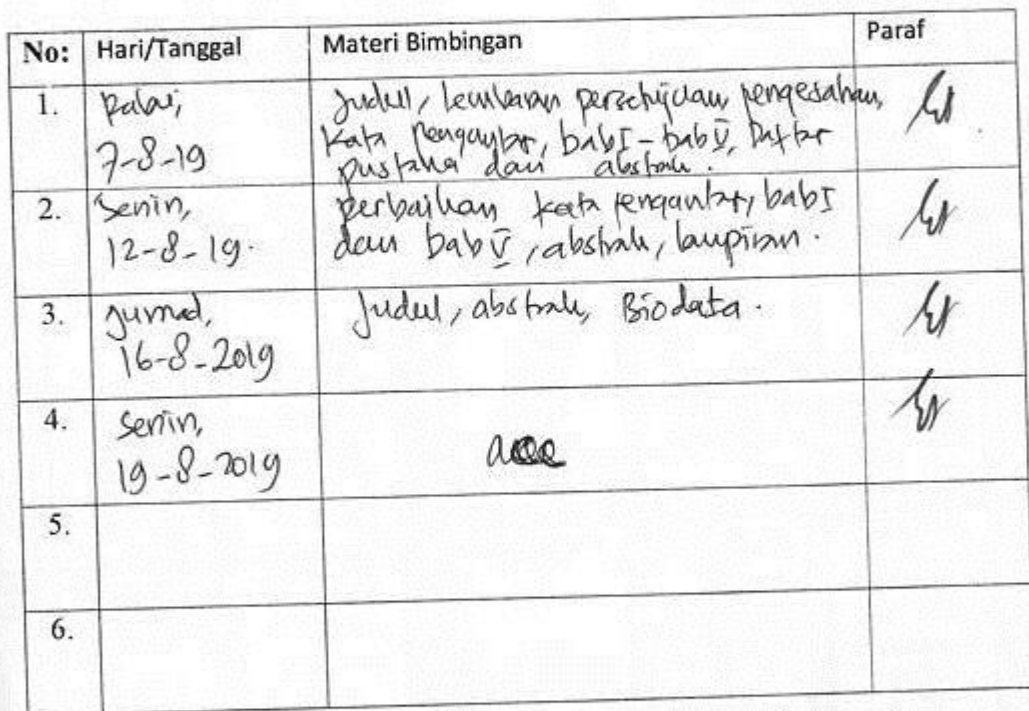 No: Hari/Tanggal Materi Bimbingan Paraf
1. Rabu, Judul, lembaran persetujuan, pengesahan,
Kata Pengantar, bab I - bab V, Daftar
7-8-19 pustaka dan abstrak.
2. Senin, perbaikan kata pengantar, bab I
12-8-19. dan bab V, abstrak, lampiran.
3. Jumad, Judul, abstrak, Biodata.
16-8-2019
4. Senin,
19-8-2019 acc
5.
6.